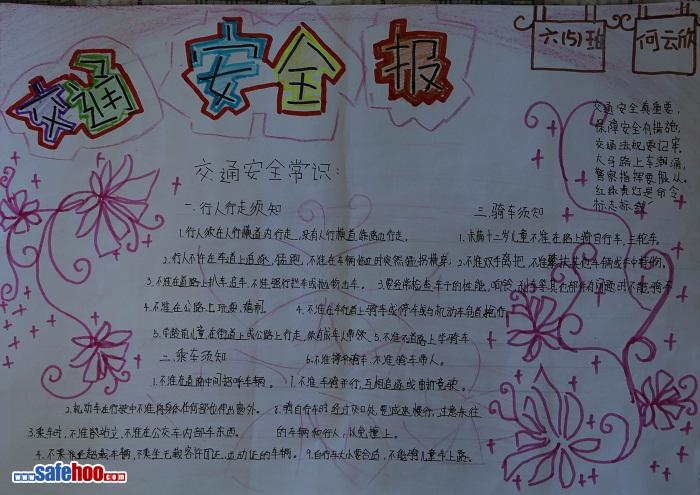 交通安全报
六(5)班
何云欣
交通安全真重要,
保障安全有措施.
交通法规要记牢.
大马路上车潮涌,
警察指挥要服从.
红绿黄灯是命令
交通安全常识:
一.行人行走须知
1.行人须在人行横道内行走,没有人行横道靠路边行走.
2.行人不许在车道上追逐,猛跑,不准在车辆临近时突然猛拐横穿;
3.不准在道路上扒车,追车,不准强行拦车或抛物击车.
4.不准在公路上玩耍、嬉闹.
5.学龄前儿童在街道上或公路上行走,须有成年人带领.
二.乘车须知
1.不准在道路中间招呼车辆.
2.机动车在行驶中不准将身体任何部位伸出窗外.
3.乘车时,不准站立,不准在公交车内部车东西.
4.不乘超载车辆,不乘坐无载客许可证,运动证的车辆.
三.骑车须知
1.未满十二岁儿童不准在路上骑自行车,三轮车.
2.不准双手离把,不准攀扶其他车辆或手中持物.
3.要经常检查车子的性能,响铃,刹车等其他部件有问题时不能骑车
4.不准在车行道上骑车或停车或与机动车争道抢行
5.不准在道路上学骑车.
6.不准骑车,不准骑车带人.
7.不准骑车并行,互相追逐或曲折竞驶.
8.骑自行车时经过交叉口处,要减速慢行,注意来往
的车辆和行人,以免撞上.
9.自行车大小要合适,不能骑儿童车上路.
www.safehoo.com